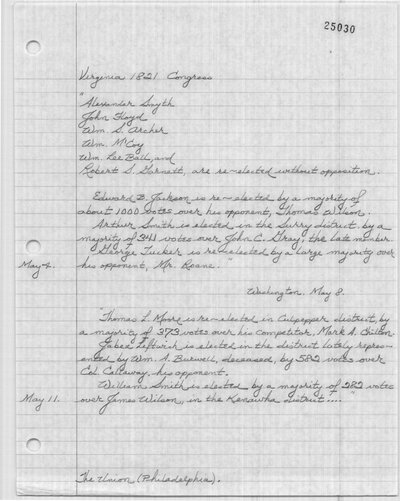 25030
Virginia 1821 Congress
"Alexander Smyth
John Floyd
Wm. S. Archer
Wm. McCoy
Wm. Lee Ball, and
Robert S. Garnett, are re-elected without opposition.
Edward B. Jackson is re-elected by a majority of
about 1000 votes over his opponent, Thomas Wilson.
Arthur Smith is elected in the Surry district by a
majority of 341 votes over John C. Gray, the late member.
George Tucker is re-elected by a large majority over
May 4. his opponent, Mr. Roane."
Washington May 8.
Thomas L. Moore is re-elected in Culpepper district, by
a majority of 373 votes over his competitor, Mark A. Chilton.
Jabez Leftwich is elected in the district lately repres-
ented by Wm. A. Burwell, deceased, by 582 votes over
Col. Callaway, his opponent.
William Smith is elected by a majority of 282 votes
May 11. over James Wilson, in the Kenawha district...."
The Union (Philadelphia).